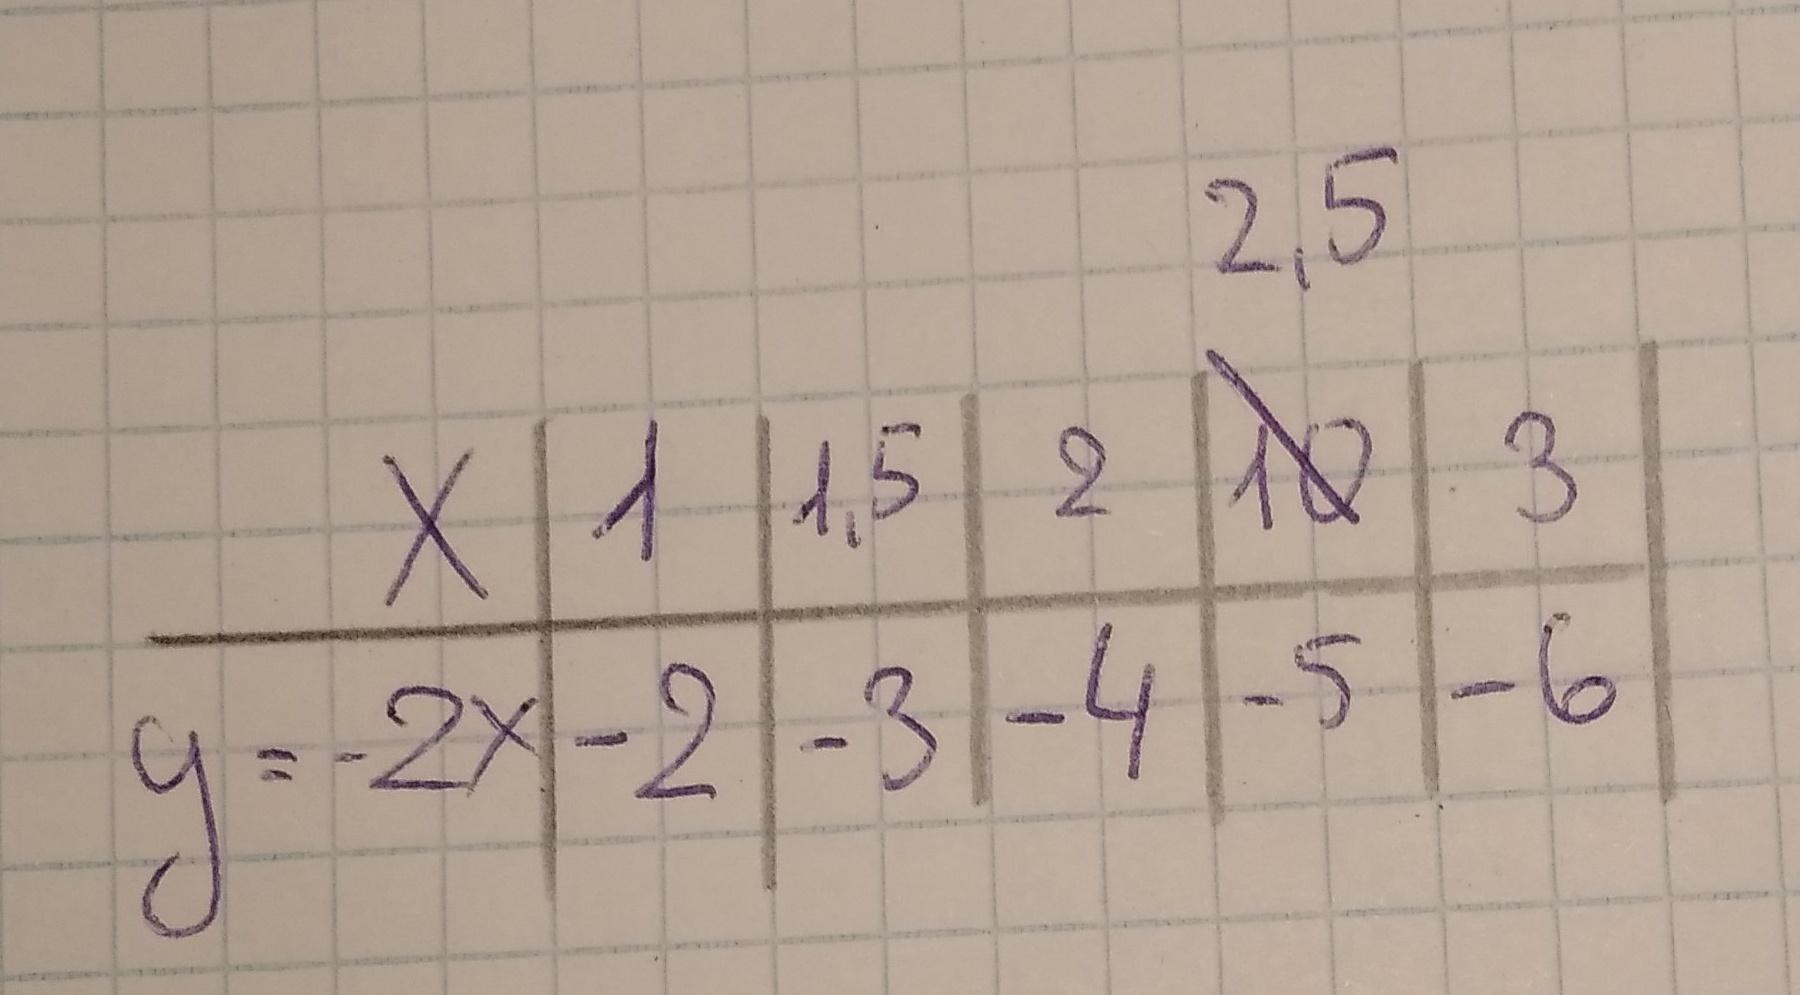 2,5
x 1 1,5 2 10 3
y = -2x -2 -3 -4 -5 -6